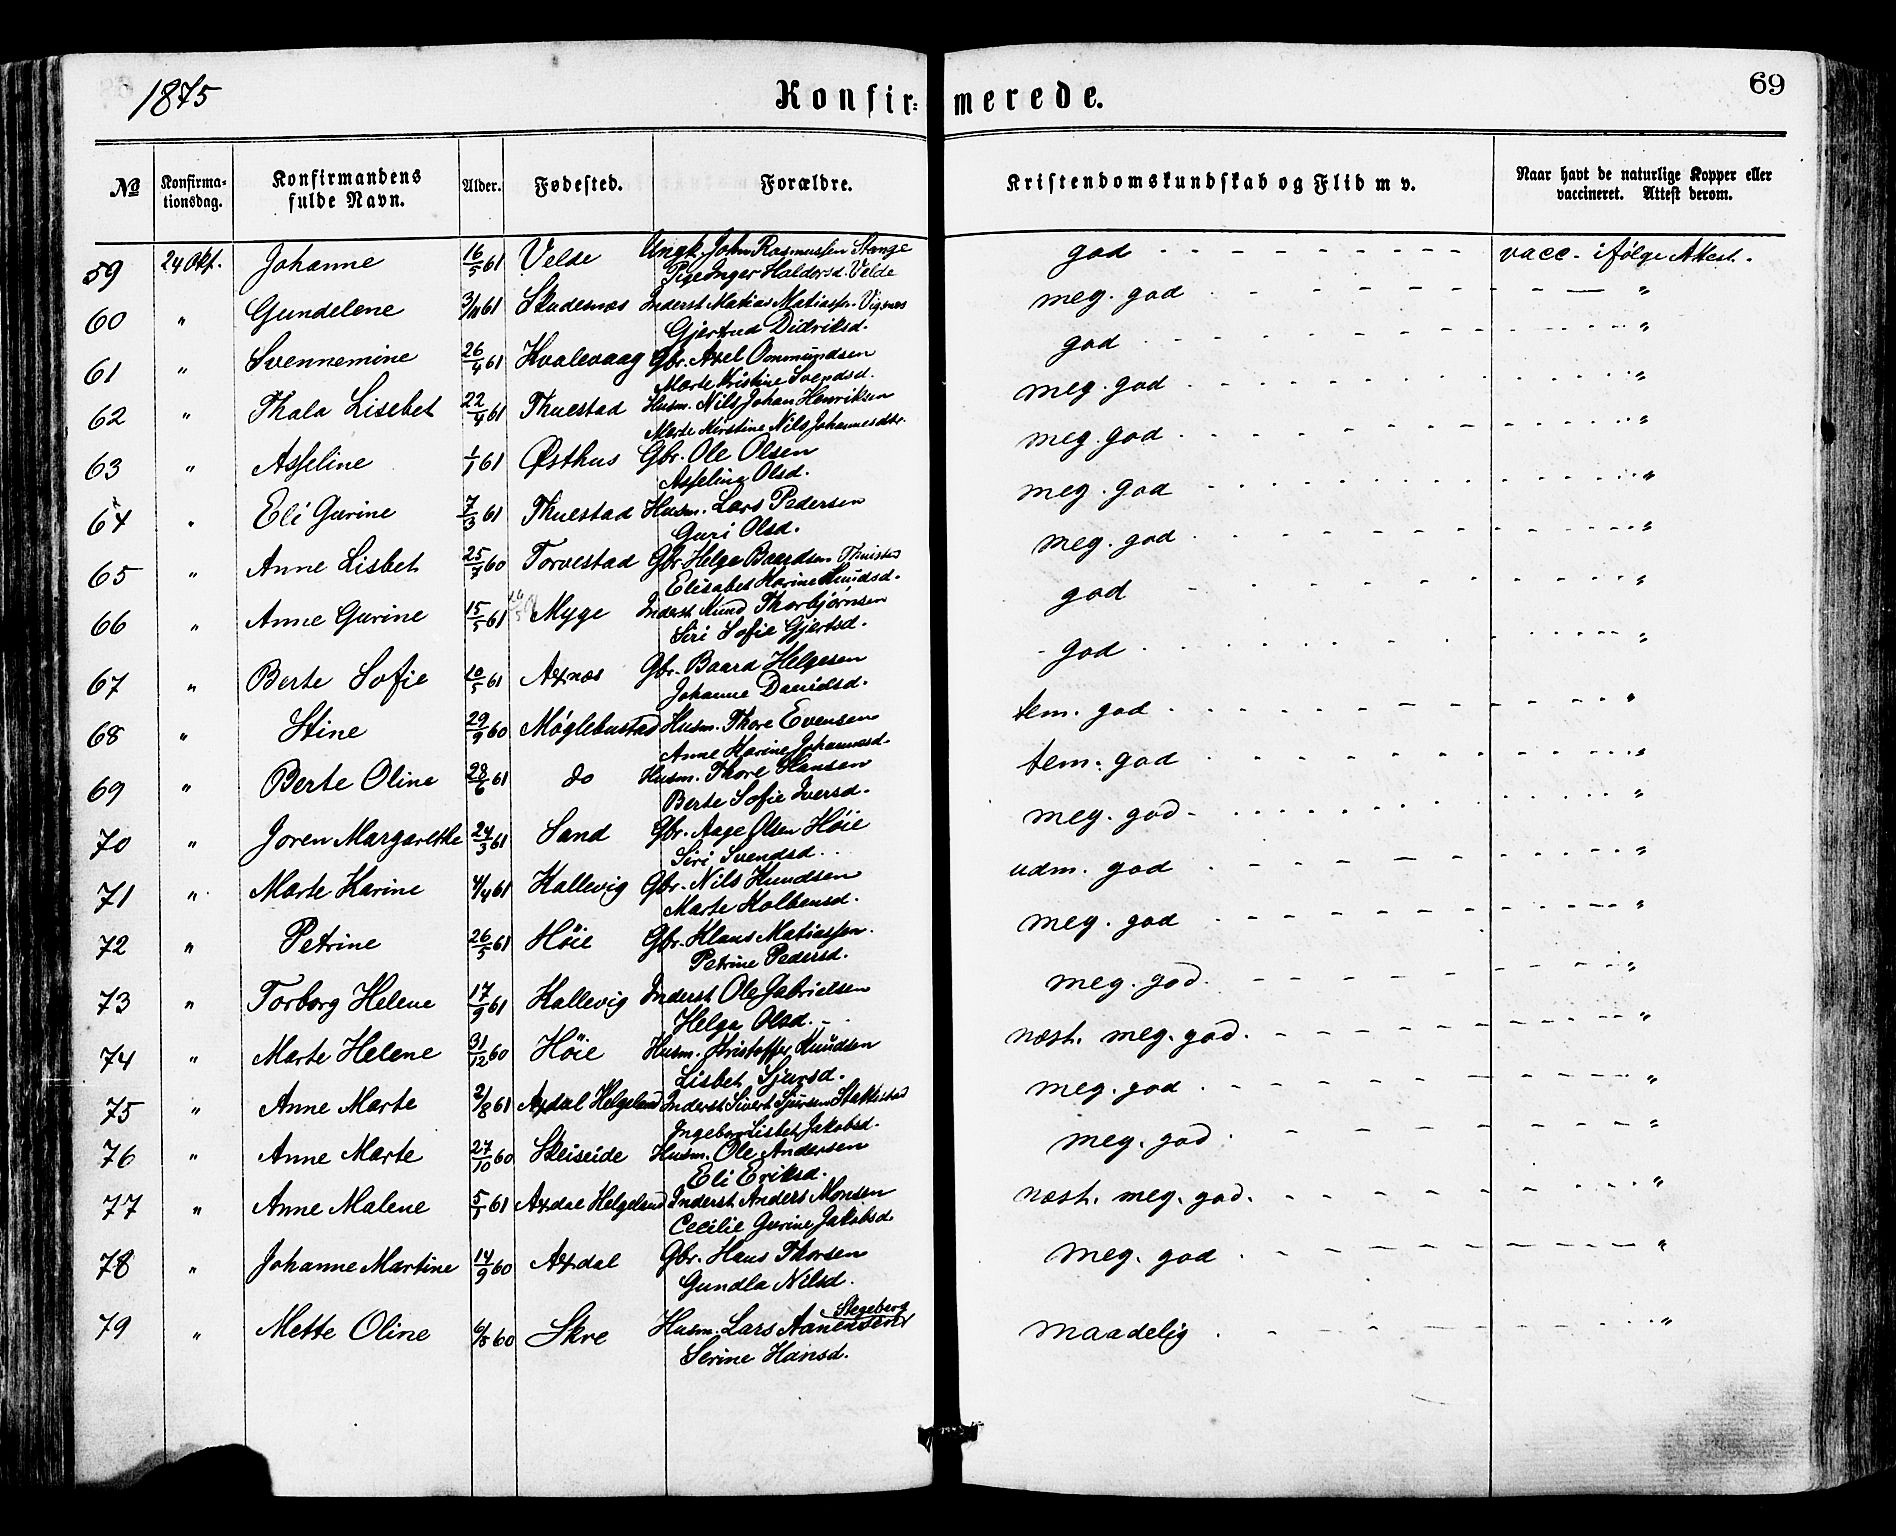 1875 Konfir= merede. 69
№ Konfirma= tionsdag. Konfirmandens fulde Navn. Alder. Fødested. Forældre. Kristendomskundskab og Flid m v. Naar havt de naturlige Kopper eller vaccineret. Attest derom.
59 24 Okt. Johanne 16/5 61 Velde Ungk. John Rasmussen Stange god vacc. ifølge Attest.
Pige Inger Haldorsd. Velde
60 " Gundelene 3/11 61 Skudesnæs Inderst Matias Matiass. Vignæs meg. god "
Gjertrud Didriksd.
61 " Svennemine 26/4 61 Kvalevaag Gbr. Axel Ommundsen god "
Marte Kristine Svendsd.
62 " Thala Lisebet 22/4 61 Thuestad Husm. Nils Johan Henriksen meg. god "
Marte Kirstine Nils Johannesdtr.
63 " Asseline 1/1 61 Østhus Gbr. Ole Olsen meg. god "
Asseline Olsd.
64 " Eli Gurine 7/3 61 Thuestad Husm. Lars Pedersen meg. god "
Guri Olsd.
65 " Anne Lisbet 25/7 60 Torvestad Gbr. Helge Baardsen meg. god "
Elisabet Karine Knudsd.
66 " Anne Gurine 15/5 61 Myge Inderst Knud Thorbjørnsen god "
Siri Sofie Gjertsd.
67 " Berte Sofie 10/5 61 Axnæs Gbr. Baard Helgesen god "
Johanne Danielsd.
68 " Stine 29/9 60 Møglebustad Husm. Thore Evensen tem. god "
Anne Karine Johannesd.
69 " Berte Oline 28/6 61 do Husm. Thore Hansen tem. god "
Berte Sofie Iversd.
70 " Joren Margarethe 24/3 61 Sand Gbr. Aage Olsen Høie meg. god "
Siri Svendsd.
71 " Marte Karine 4/4 61 Kallevig Gbr. Nils Knudsen udm. god "
Marte Kolbensd.
72 " Petrine 26/5 61 Høie Gbr. Klaus Matiassen meg. god "
Petrine Pedersd.
73 " Torborg Helene 17/9 61 Kallevig Inderst Ole Gabrielsen meg. god. "
Helga Olsd.
74 " Marte Helene 31/12 60 Høie Husm. Kristoffer Knudsen næst. meg. god. "
Lisbet Sjursd.
75 " Anne Marte 2/8 61 Axdal Helgeland Inderst Sivert Sjursen meg. god "
Ingeborg Lisbet Jakobsd.
76 " Anne Marte 27/10 60 Skeiseide Husm. Ole Andersen meg. god "
Eli Eriksd.
77 " Anne Malene 5/1 61 Axdal Helgeland Inderst Anders Monsen næst. meg. god. "
Cecilie Gurine Jakobsd.
78 " Johanne Martine 14/9 60 Axdal Gbr. Hans Thorsen meg. god "
Gundla Nilsd.
79 " Mette Oline 6/8 60 Skre Husm. Lars Aanensen Stegeberg maadelig "
Serine Hansd.